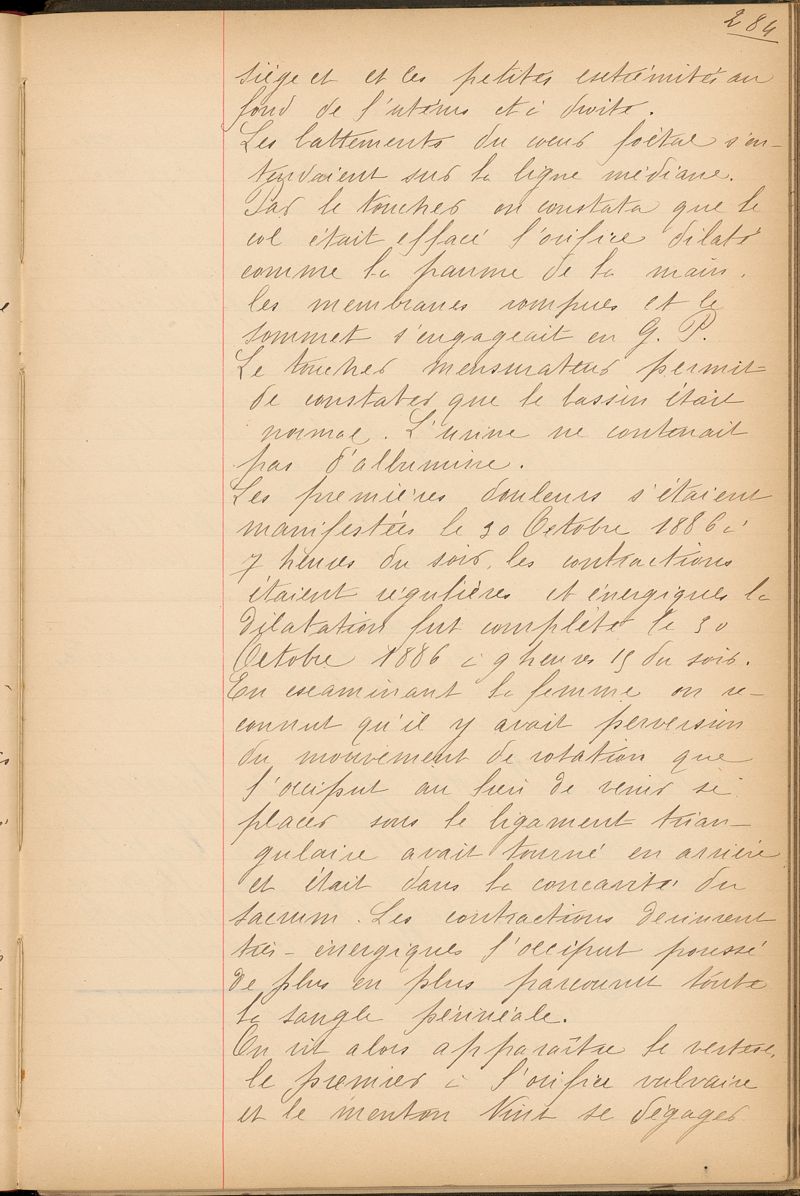 284
siège et et les petites extrémités au
fond de l'utérus et à droite.
Les battements du cœur foetal s'en-
tendaient sur la ligne médiane.
Par le toucher on constata que le
col était effacé l'orifice dilaté
comme la paume de la main.
les membranes rompues et le
sommet s'engageait en G. P.
Le toucher mensurateur permit-
de constater que le bassin était
normal. L'urine ne contenait
pas d'albumine.
Les premières douleurs s'étaient
manifestées le 30 Octobre 1886 à
7 heures du soir, les contractions
étaient régulières et énergiques la
dilatation fut complète le 30
Octobre 1886 à 9 heures 15 du soir.
En examinant la femme on re-
connut qu'il y avait perversion
du mouvement de rotation que
l'occiput au lieu de venir se
placer sous le ligament trian-
gulaire avait tourné en arrière
et était dans la concavité du
sacrum. Les contractions devinrent
très-énergiques l'occiput poussé
de plus en plus parcourut toute
la sangle périnéale.
On vit alors apparaître le vertex,
le premier à l'orifice vulvaire
et le menton vint se dégager